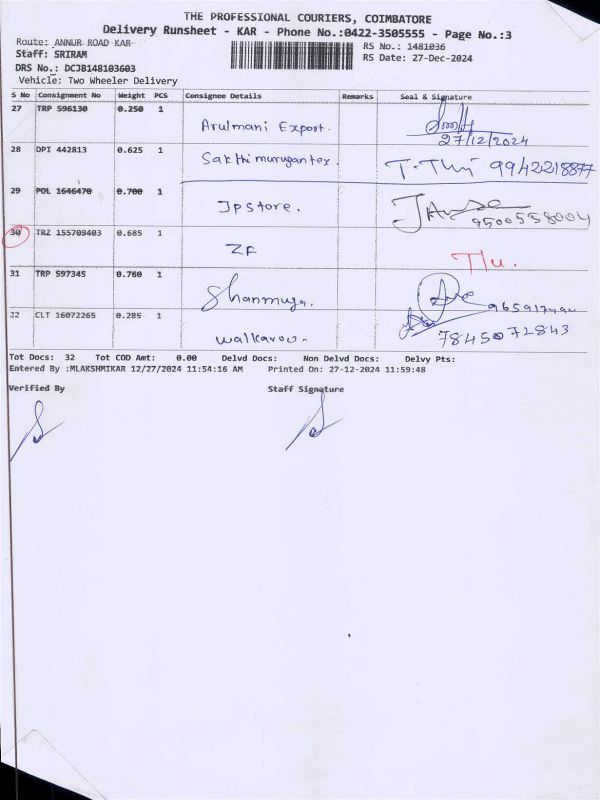 THE PROFESSIONAL COURIERS, COIMBATORE
Delivery Runsheet - KAR - Phone No.:0422-3505555 - Page No.:3
Route: ANNUR ROAD KAR
RS No.: 1481036
Staff: SRIRAM
RS Date: 27-Dec-2024
DRS No.: DCJB148103603
Vehicle: Two Wheeler Delivery
S No Consignment No Weight PCS Consignee Details Remarks Seal & Signature
27 TRP 596130 0.250 1 Arulmani Export.
27/12/2024
28 DPI 442813 0.625 1 Sakthimurugantex. 9942218877
29 POL 1646470 0.700 1 Jpstore. 9500558004
30 TRZ 155709403 0.685 1 ZF
31 TRP 597345 0.760 1 Shanmuga.
32 CLT 16072265 0.285 1 Walkaroo. 7845072843
Tot Docs: 32 Tot COD Amt: 0.00 Delvd Docs: Non Delvd Docs: Delvy Pts:
Entered By :MLAKSHMIKAR 12/27/2024 11:54:16 AM Printed On: 27-12-2024 11:59:48
Verified By Staff Signature